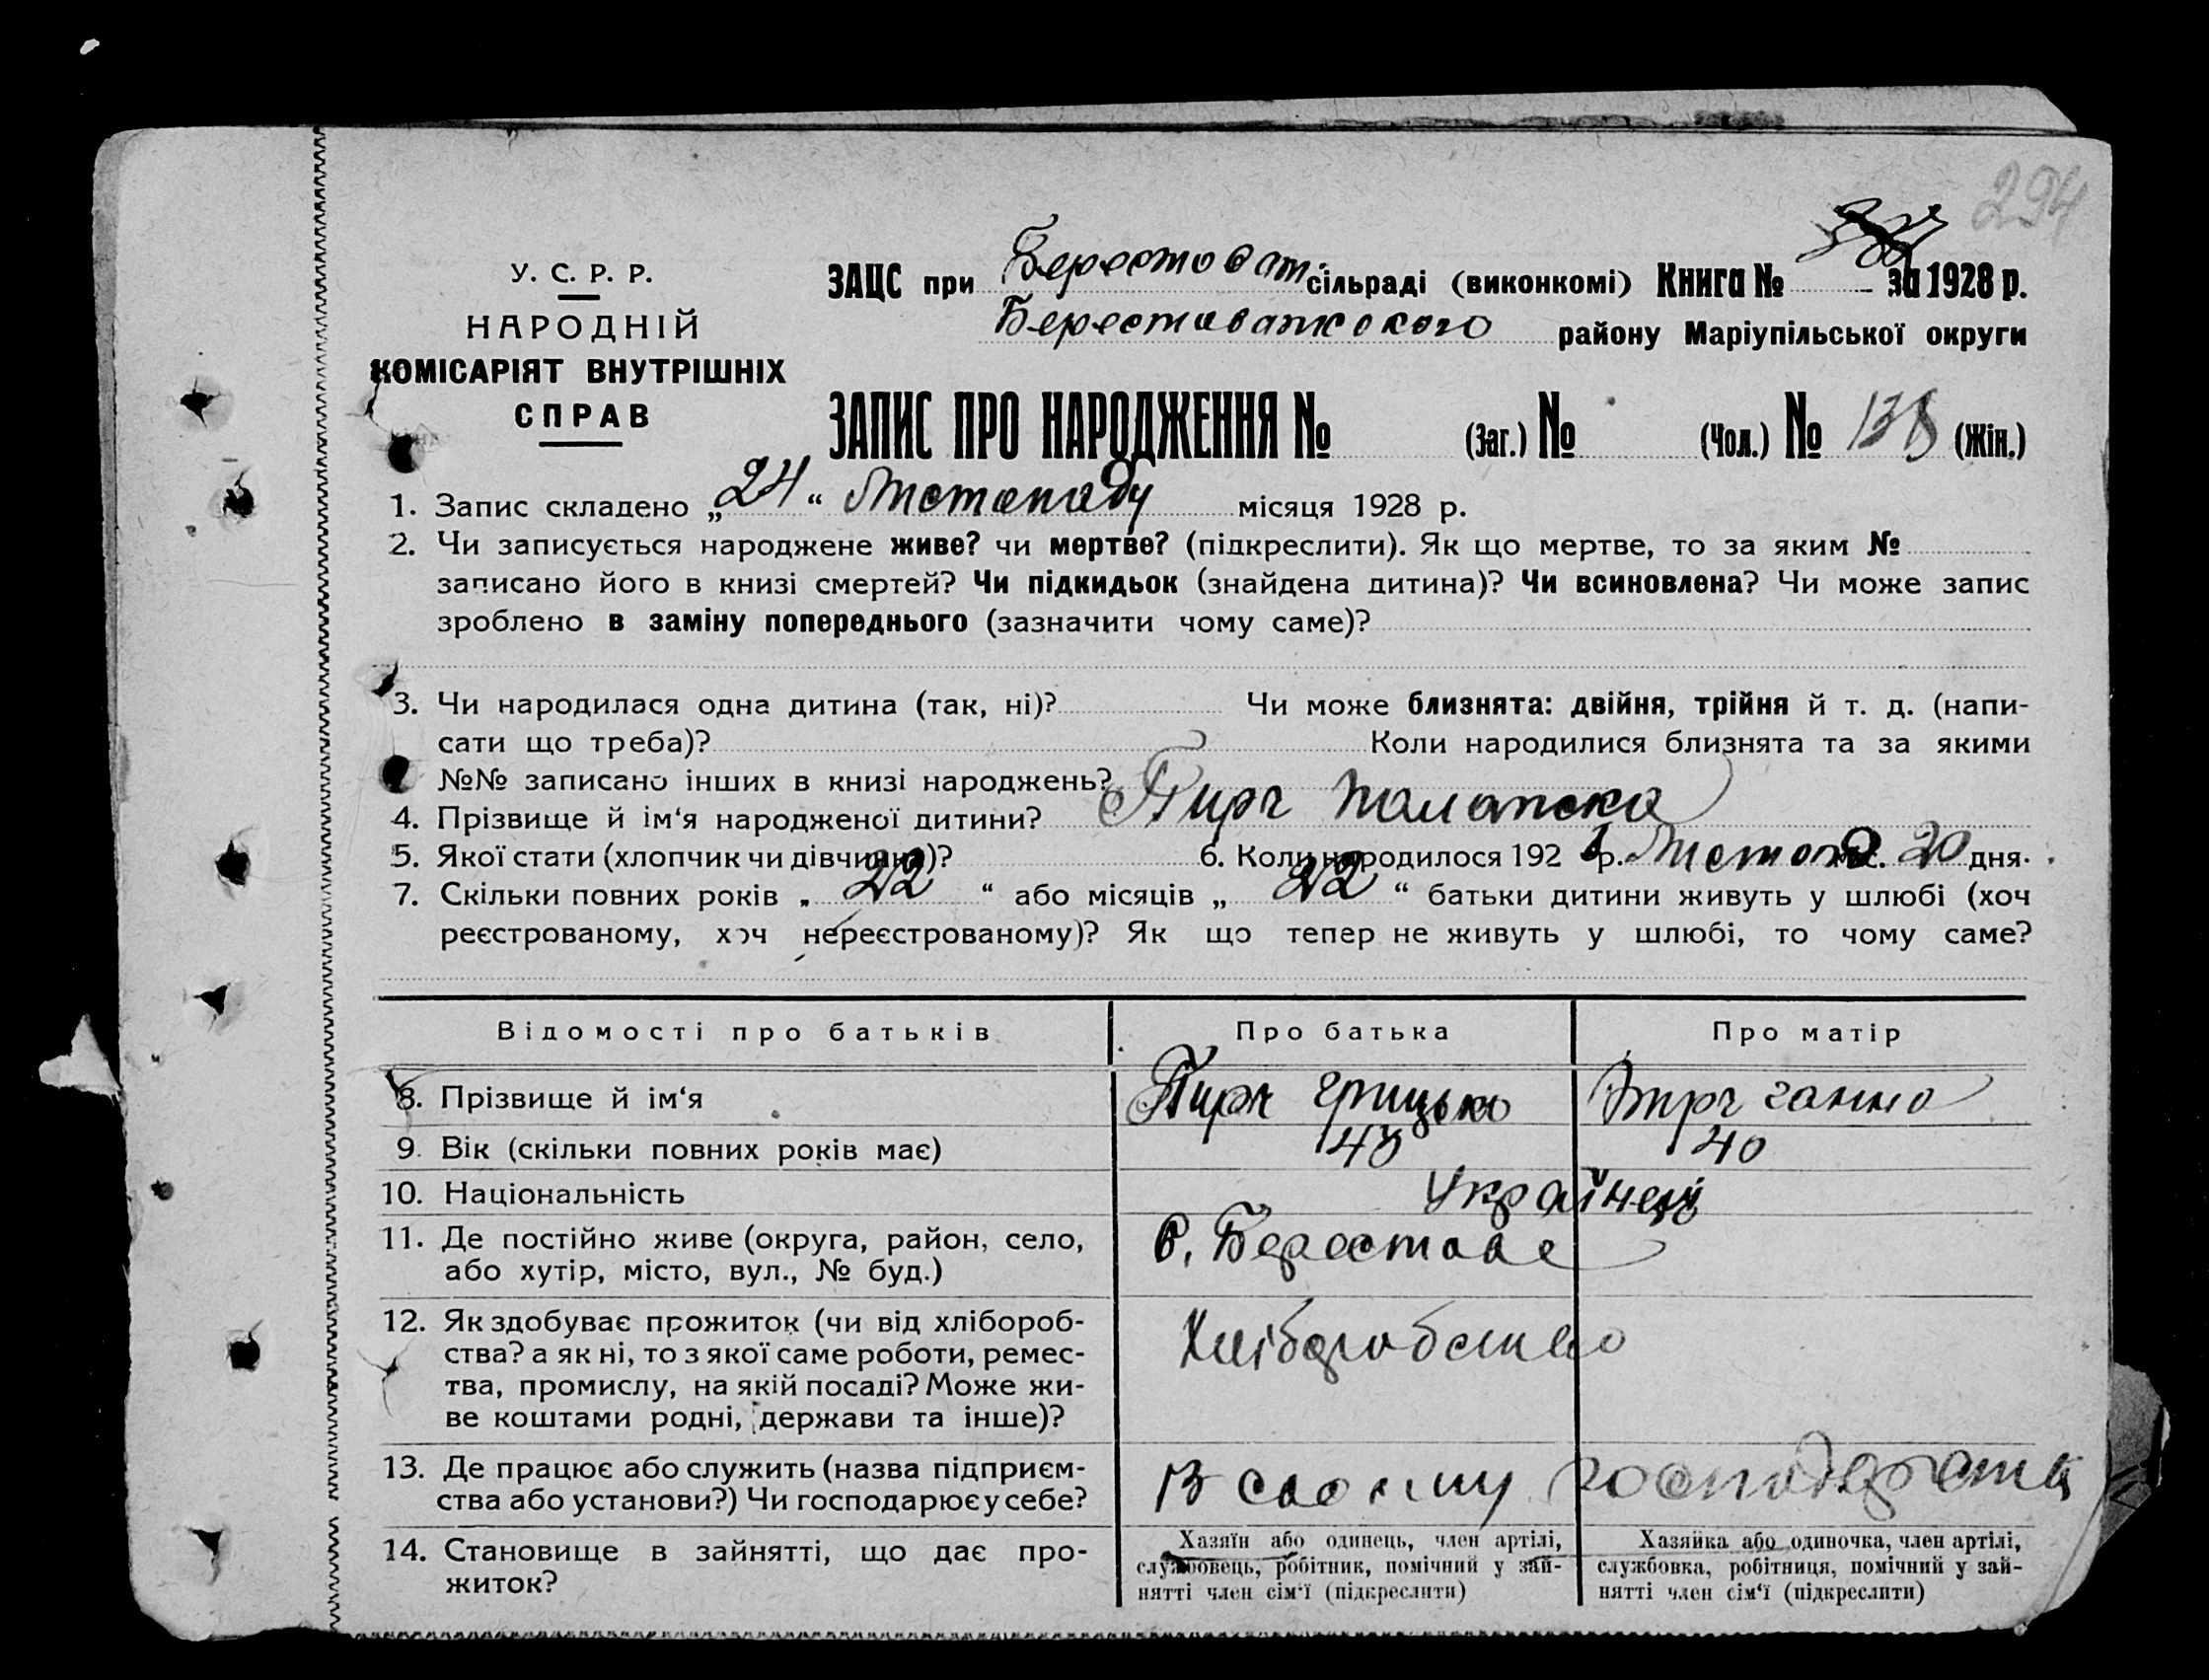 294
У. С. Р. Р.
НАРОДНІЙ
КОМІСАРІЯТ ВНУТРІШНІХ
СПРАВ
ЗАЦС при Берестоват. сільраді (виконкомі) Книга № за 1928 р.
Берестоватського району Маріупільської округи
ЗАПИС ПРО НАРОДЖЕННЯ № (Заг.) № (Чол.) № 138 (Жін.)
1. Запис складено „24“ Листопаду місяця 1928 р.
2. Чи записується народжене живе? чи мертве? (підкреслити). Як що мертве, то за яким №
записано його в книзі смертей? Чи підкидьок (знайдена дитина)? Чи всиновлена? Чи може запис
зроблено в заміну попереднього (зазначити чому саме)?
3. Чи народилася одна дитина (так, ні)? Чи може близнята: двійня, трійня й т. д. (напи-
сати що треба)? Коли народилися близнята та за якими
№№ записано інших в книзі народжень?
4. Прізвище й ім‘я народженої дитини? Пирч
5. Якої стати (хлопчик чи дівчинка)? 6. Коли народилося 192 8 р. Листопад міс. 20 дня.
7. Скільки повних років „ 22 “ або місяців „ 22 “ батьки дитини живуть у шлюбі (хоч
реєстрованому, хоч нереєстрованому)? Як що тепер не живуть у шлюбі, то чому саме?
Відомості про батьків Про батька Про матір
8. Прізвище й ім‘я Пирч Грицько Пирч Ганна
9. Вік (скільки повних років має) 43 40
10. Національність Українці
11. Де постійно живе (округа, район, село, с. Берестове
або хутір, місто, вул., № буд.)
12. Як здобуває прожиток (чи від хлібороб- Хліборобство
ства? а як ні, то з якої саме роботи, ремес-
тва, промислу, на якій посаді? Може жи-
ве коштами родні, держави та інше)?
13. Де працює або служить (назва підприєм- В своєму господарстві
ства або установи?) Чи господарює у себе?
14. Становище в зайнятті, що дає про-
житок?
Хазяїн або одинець, член артілі,
службовець, робітник, помічний у зай-
нятті член сім‘ї (підкреслити)
Хазяйка або одиночка, член артілі,
службовка, робітниця, помічний у зай-
нятті член сім‘ї (підкреслити)